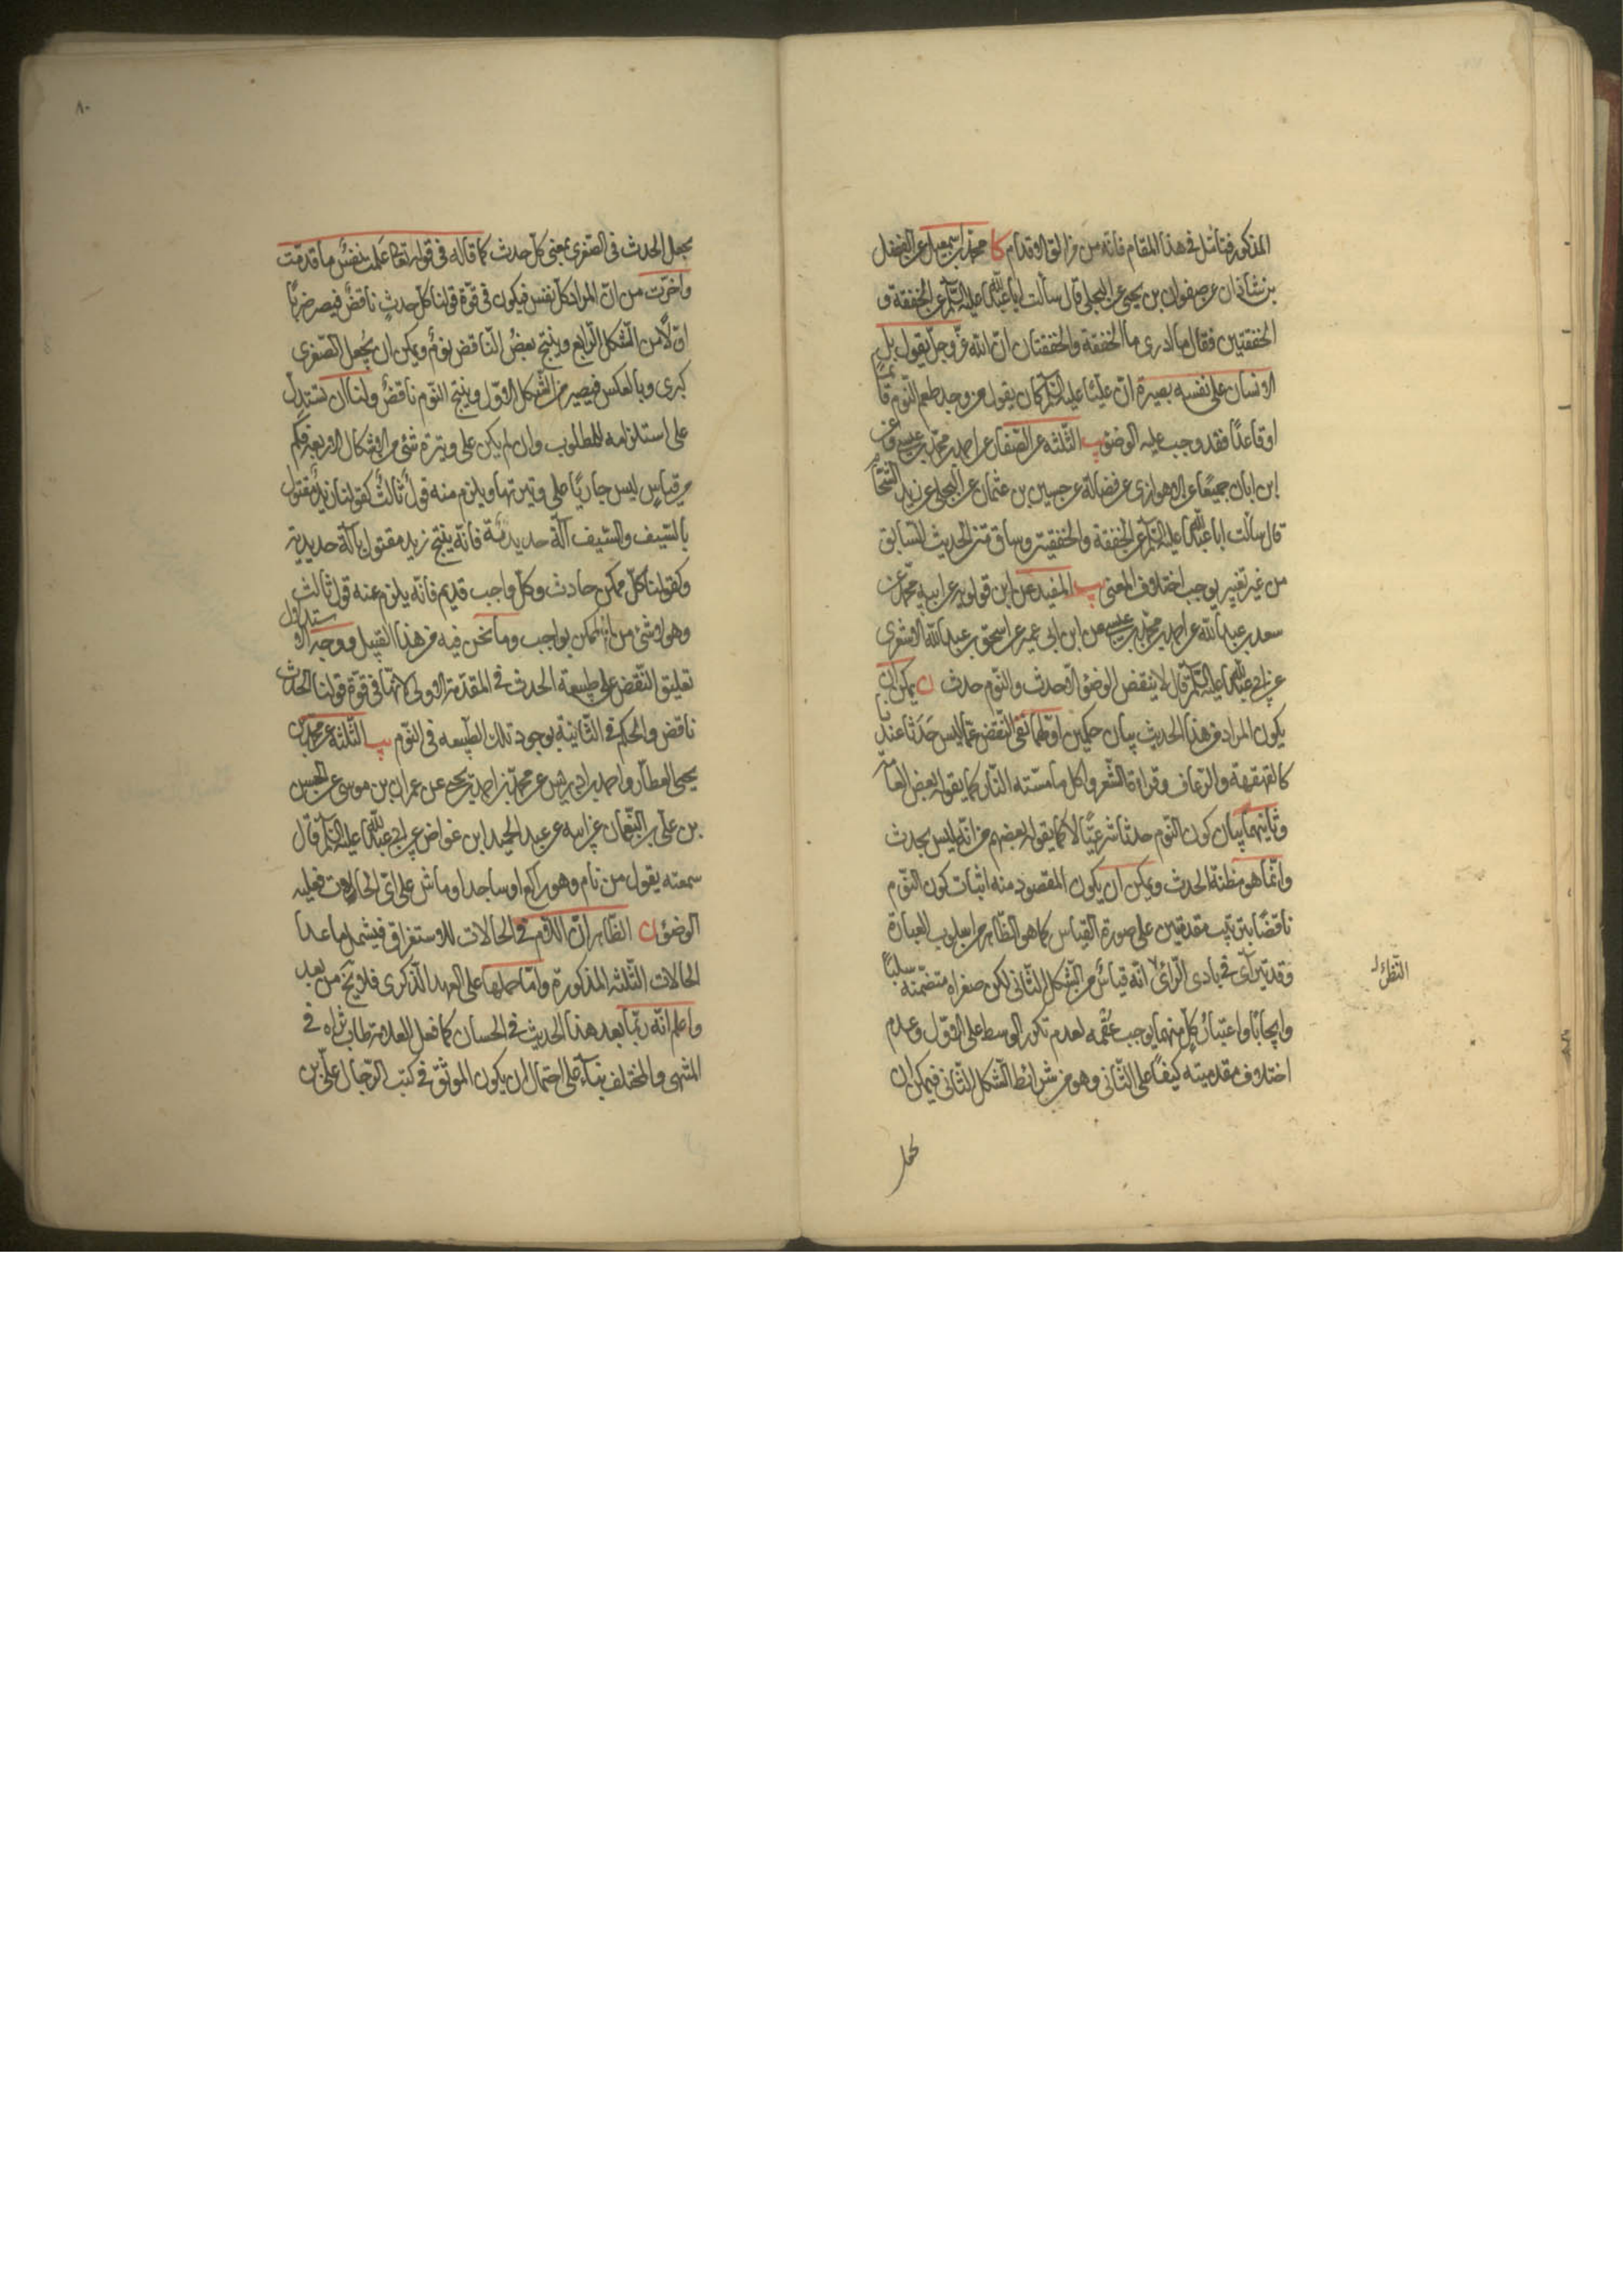 المذكور فتأمل في هذا المقام فانه من مزالق الاقدام كا محمد بن اسمعيل عن الفضل
بن شاذان عن صفوان بن يحيى عن البجلي قال سألت ابا عبد الله عليه السلم عن الخفقة و
الخفقتين فقال ما ادرى ما الخفقة والخفقتان ان الله عز وجل يقول بل
الانسان على نفسه بصيرة ان عليا عليه السلم كان يقول من وجد طعم النوم قائما
او قاعدا فقد وجب عليه الوضوء يب الثلثه عن الصفار عن احمد بن محمد بن عيسى وعن
ابن ابان جميعا عن الاهوازى عن فضالة عن حسين بن عثمان عن البجلي عن زيد الشحام
قال سألت ابا عبد الله عليه السلم عن الخفقة والخفقتين وساق متن الحديث السابق
من غير تغيير يوجب اختلاف المعنى يب المفيد عن ابن قولويه عن ابيه محمد عن
سعد بن عبد الله عن احمد بن محمد بن عيسى عن ابن ابى عمير عن اسحق بن عبد الله الاشعرى
عن ابي عبد الله عليه السلم قال لا ينقض الوضوء الا حدث والنوم حدث ن يمكن ان
يكون المراد من هذا الحديث بيان حكمين اولهما نفى النقض عما ليس حدثا عندنا
كالقهقهة والرعاف وقراءة الشعر واكل ما مسته النار كما يقوله بعض العامة
وثانيهما بيان كون النوم حدثا شرعيا لا كما يقوله بعضهم من انه ليس بحدث
وانما هو مظنة الحدث ويمكن ان يكون المقصود منه اثبات كون النوم
ناقضا بترتيب مقدمتين على صورة القياس كما هو الظاهر من اسلوب العبارة
وقد يتراءى في بادى الرأى انه قياس من الشكل الثانى لكن صغراه متضمنة سلبا
وايجابا واعتبار كل منهما يوجب عقمه لعدم تكرر الوسط على الاول وعدم
اختلاف مقدميته كيفا على الثانى وهو من شرائط الشكل الثانى فيمكن ان
يجعل الحدث في الصغرى بمعنى كل حدث كما قاله في قوله تعالى علمت نفس ما قدمت
واخرت من ان المراد كل نفس فيكون في قوة قولنا كل حدث ناقض فيصر ضربا
اولا من الشكل الرابع وينتج بعض الناقض نوم ويمكن ان يجعل الصغرى
كبرى وبالعكس فيصير من الشكل الاول وينتج النوم ناقض ولنا ان نستدل
على استلزامه للمطلوب وان لم يكن على وتيرة شئ من الاشكال الاربعة فكم
من قياس ليس جاريا على وتيرتها ويلزم منه قول ثالث كقولنا زيد مقتول
بالسيف والسيف آلة حديدية فانه ينتج زيد مقتول بآلة حديدية
وكقولنا كل ممكن حادث وكل واجب قديم فانه يلزم عنه قول ثالث
وهو لا شئ من الممكن بواجب وما نحن فيه من هذا القبيل ووجه الاستدلال
تعليق النقض على طبيعة الحدث في المقدمة الاولى لانها في قوة قولنا الحدث
ناقض والحكم في الثانية بوجود تلك الطبيعه في النوم يب الثلثة عن محمد بن
يحيى العطار واحمد بن ادريس عن محمد بن احمد بن يحيى عن عمران بن موسى عن الحسن
بن على بن النعمان عن ابيه عن عبد الحميد ابن غواض عن ابي عبد الله عليه السلم قال
سمعته يقول من نام وهو راكع او ساجد او ماش على اى الحالات فعليه
الوضوء ن الظاهر ان اللام في الحالات للاستغراق فيشمل ما عدا
الحالات الثلثه المذكورة واما حملها على العهد الذكرى فلا يخ من بعد
واعلم انه ربما يعد هذا الحديث في الحسان كما فعل العلامة طاب ثراه في
المنتهى والمختلف بناء على احتمال ان يكون الموثق في كتب الرجال على بن
يجعل
٨٠